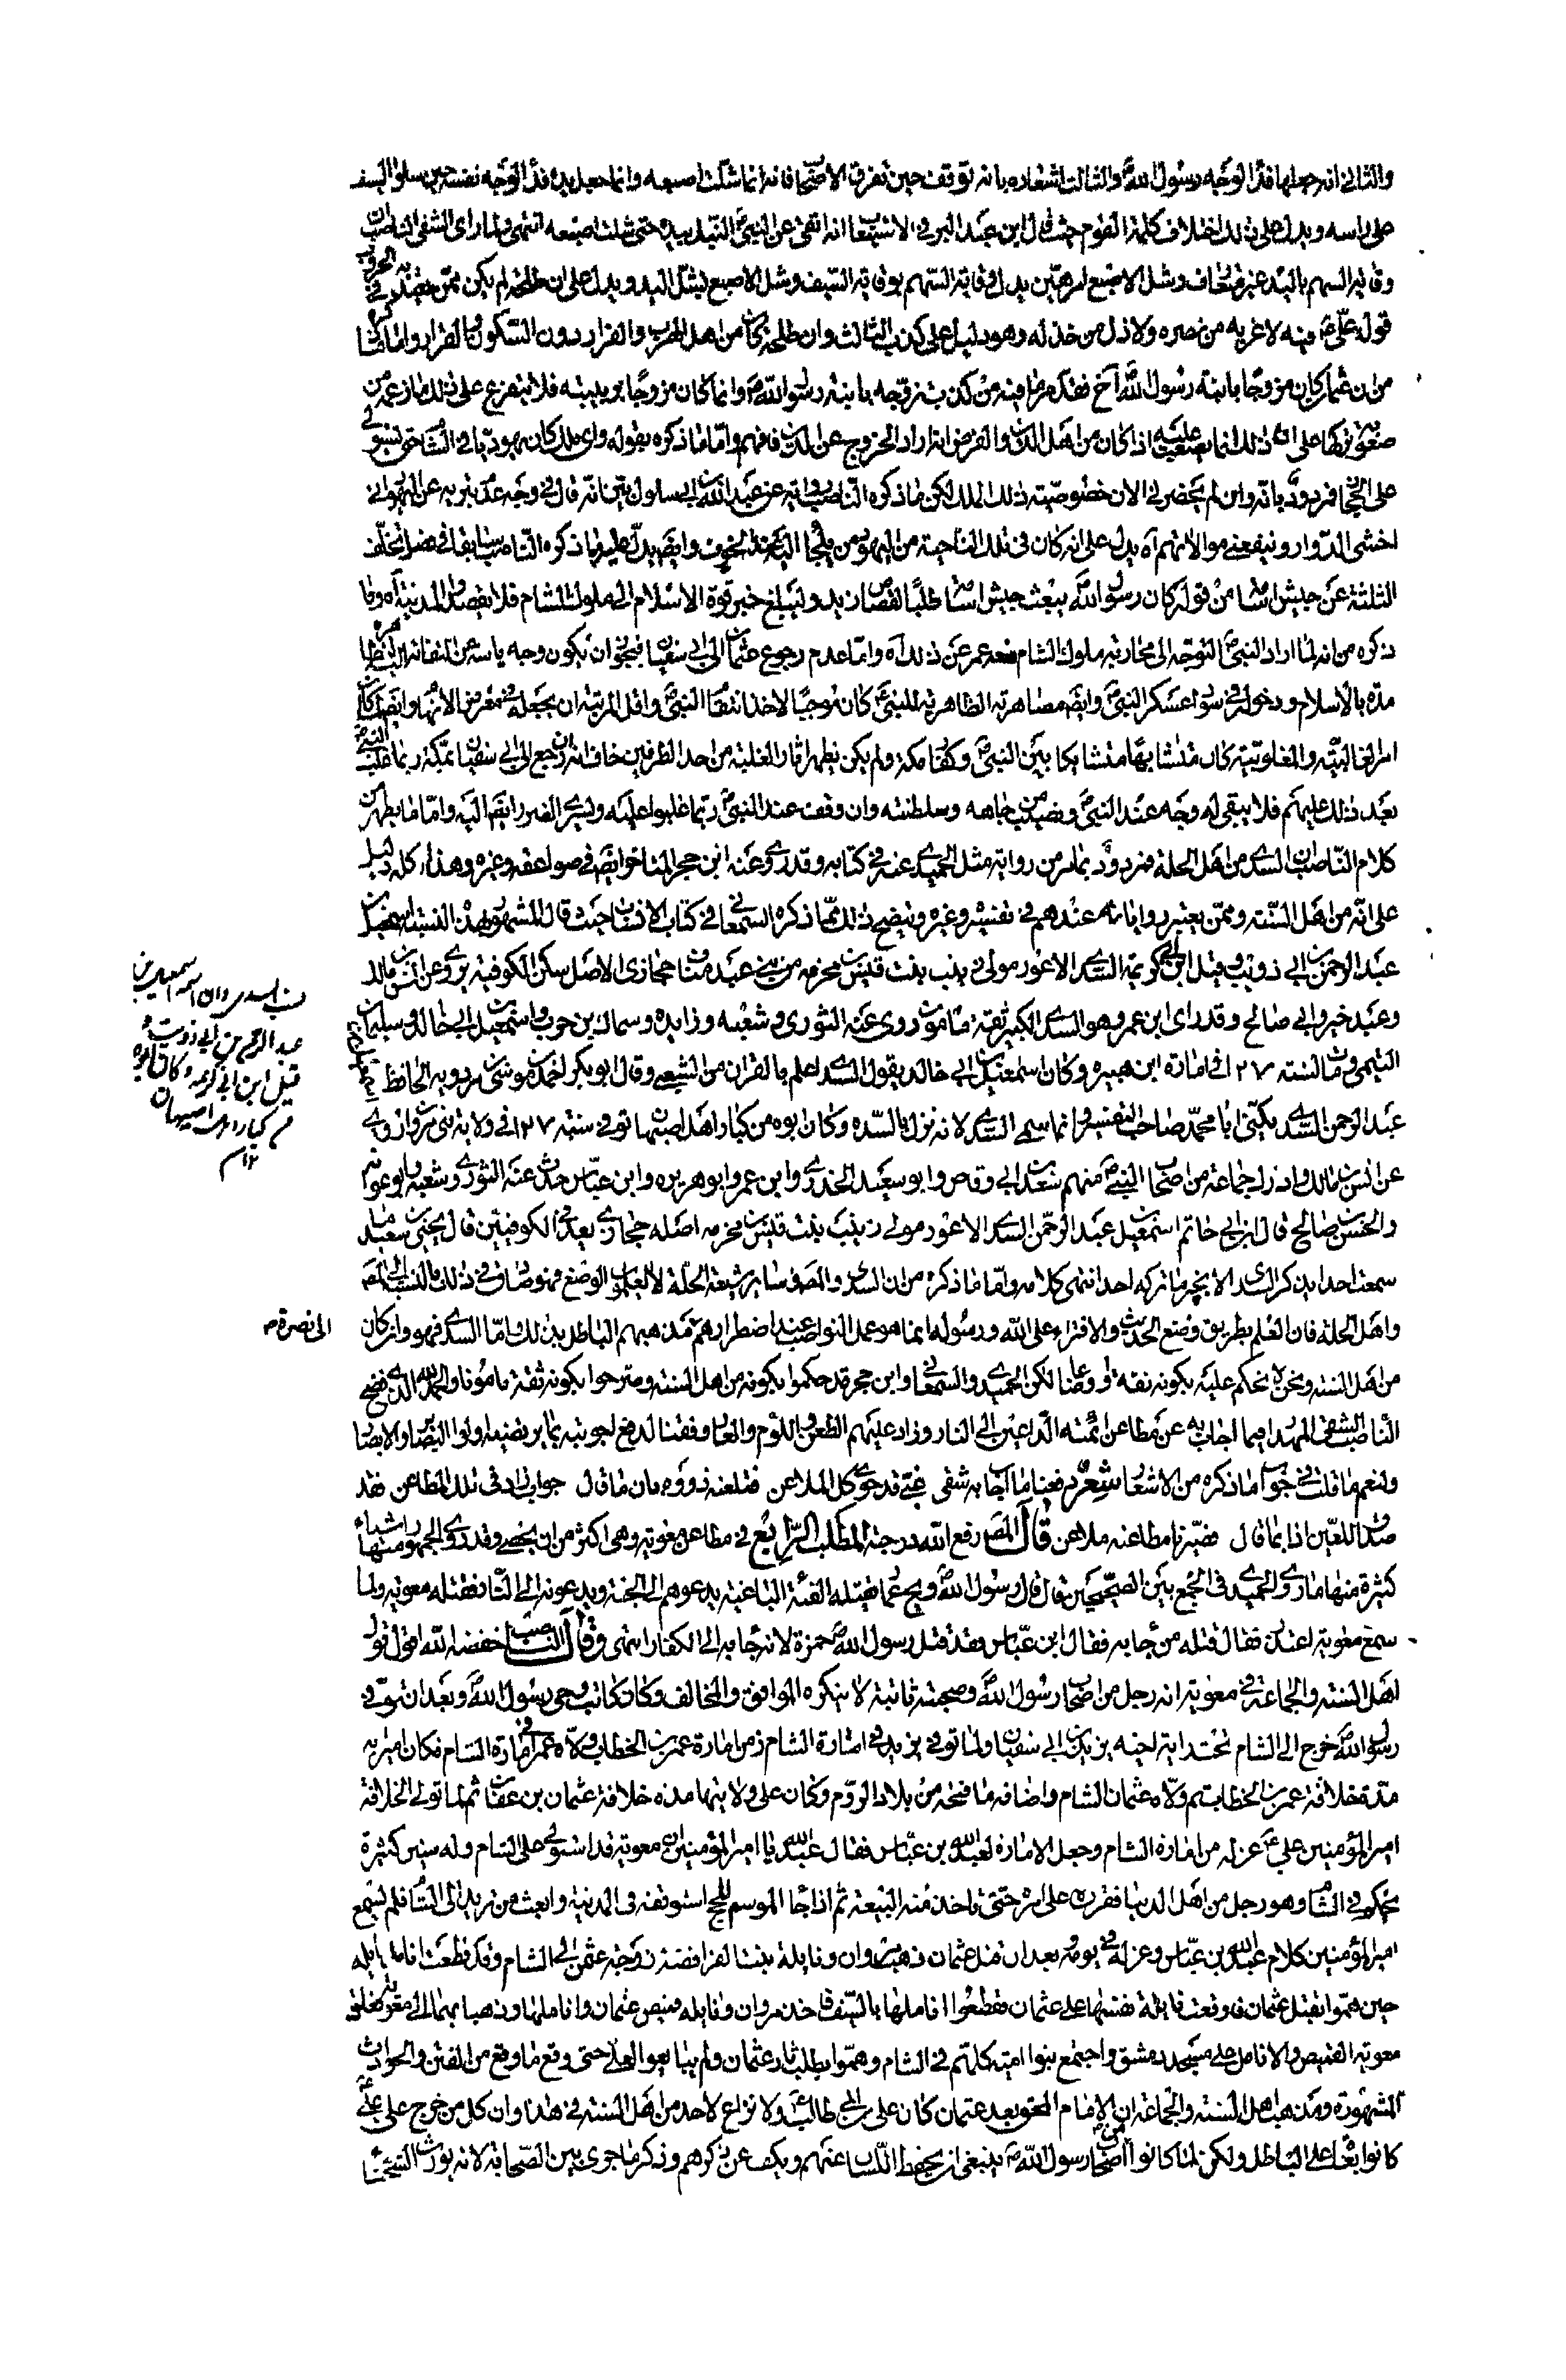 والثاني انه جعلها فداء لوجه رسول الله ص والثالث اشعاره بانه توقف حين تفرق الاصحاب فانه انما شلت اصبعه وانما جعل يده فداء لوجه نفسه حين سلوا السيف
على راسه ويدل على ذلك اختلاف كلمة القوم حيث قال ابن عبد البر في الاستيعاب انه اتقى عن النبي ص النبل بيده حتى شلت اصبعه انتهى ولما راى الشقي الناصب ان
وقاية السهم باليد غير متعارف وشل الاصبع امر هين بدل وقاية السهم بوقاية السيف وشل الاصبع بشل اليد ويدل على ان طلحة لم يكن ممن
قول علي ع فيه لا غر به من نصره ولا ذل من خذله وهو دليل على كذب الثالث وان طلحة كان من اهل الهرب والفرار دون السكون والقرار واما
من ان عثمان كان مزوجا بابنة رسول الله ص آخ فقد مر ما فيه من كذب تزوجه بابنة رسول الله ص وانما كان مزوجا بربيبته فلا يتفرع على ذلك ما زعمه من
صعوبة تركها على ان ذلك انما يصعب عليه اذا كان من اهل الدين والفرض انه اراد الخروج عن الدين فافهم واما ما ذكره بقوله واي ملك كان يهوديا في الشام حتى يستولي
على الحجاز فمردود بانه وان لم يحضرني الان خصوصية ذلك الملك لكن ما ذكره الناصب رواية عن عبد الله بن ابي سلول من انه قال في وجه عدم تبريه عن اليهود اني
اخشى الدوائر وينفعني موالاتهم آه يدل على انه كان في تلك الناحية من اليهود من يلجا اليه عند الخوف وايضا يدل عليه ما ذكره الناصب سابقا في فصل تخلف
الثلثة عن جيش اسامة من قوله كان رسول الله ص يبعث جيش اسامة طلبا لقصاص زيد وليبلغ خبر قوة الاسلام الى ملوك الشام فلا يقصدوا المدينة آه وما
ذكره من انه لما اراد النبي ص التوجه الى محاربة ملوك الشام منعه عمر عن ذلك آه واما عدم رجوع عثمان الى ابي سفيان فيجوز ان يكون وجه ياسه من التفاته اليه
مدة بالاسلام ودخوله في سواد عسكر النبي ص وايضا مصاهرته الظاهرية للنبي ص كان موجبا لاخذ انتقام النبي ص واقل المرتبة ان يجعله في معرض الاتهام وايضا كان
امر الغالبية والمغلوبية كان متشابها متشابكا بين النبي ص وكفار مكة ولم يكن يظهر اثار الغلبة من احد الطرفين خاف انه ان رجع الى ابي سفيان بمكة ربما غلب النبي ص
بعد ذلك عليهم فلا يبقى له وجه عند النبي ص ونصيب من جاهه وسلطنته وان وقف عند النبي ص ربما غلبوا عليه ويسري الضرر ايضا اليه واما ما يظهر من
كلام الناصب ان السدي من اهل الحلة فمردود بما مر من رواية مثل الحميدي عنه في كتابه وقد روى عنه ابن حجر المتاخر ايضا في صواعقه وغيره وهذا كله دليل
على انه من اهل السنة وممن يعتبر رواياته عندهم في تفسيره وغيره ويتضح ذلك مما ذكره السمعاني في كتاب الانساب حيث قال المشهور بهذه النسبة اسمعيل بن
عبد الرحمن بن ابي ذويب وقيل ابن ابي كريمة السدي الاعور مولى زينب بنت قيس بن مخرمه من بني عبد مناف حجازي الاصل سكن الكوفة يروي عن انس بن مالك
وعبد خير وابي صالح وقد راى ابن عمر وهو السدي الكبير ثقة مامون روى عنه الثوري وشعبه وزايده وسماك بن حرب واسمعيل بن ابي خالد وسليمان
التيمي ومات سنة ١٢٧ في امارة ابن هبيره وكان اسمعيل بن ابي خالد يقول السدي اعلم بالقران من الشعبي وقال ابو بكر احمد بن موسى بن مردويه الحافظ
عبد الرحمن السدي يكنى ابا محمد صاحب التفسير وانما سمي السدي لانه نزل بالسده وكان ابوه من كبار اهل اصبهان توفي سنة ١٢٧ في ولاية بني مروان روى
عن انس بن مالك وادرك جماعة من اصحاب النبي ص منهم سعد بن ابي وقاص وابو سعيد الخدري وابن عمر وابو هريره وابن عباس حدث عنه الثوري وشعبه وابو عوانه
والحسن بن صالح قال ابن ابي حاتم اسمعيل بن عبد الرحمن السدي الاعور مولى زينب بنت قيس بن مخرمه اصله حجازي يعد في الكوفيين قال يحيى بن سعيد ما
سمعت احدا يذكر السدي الا بخير ما تركه احد انتهى كلامه واما ما ذكره من ان السدي والمصنف وساير شيعة الحلة لا
واهل الحلة فان العلم بطريق وضع الحديث والافتراء على الله ورسوله انما هو عمل النواصب عند اضطرارهم مذهبهم الباطل بذلك واما السدي فهو وان كان
الى نصرة
من اهل السنة ونحن لا نحكم عليه بكونه ثقة او وضاعا لكن الحميدي والسمعاني وابن حجر قد حكموا بكونه من اهل السنة وصرحوا بكونه ثقة مامونا والحمد لله الذي فضح
الناصب الشقي المهذار فيما اجاب به عن مطاعن ائمته الداعين الى النار وزاد عليهم الطعن واللوم والعار ووفقنا لدفع اجوبته بما يرتضيه اولوا البصائر والابصار
ولنعم ما قلت في جواب ما ذكره من الاشعار شعر دفعنا ما اجاب به شقي غبي قد حوى كل الملاعن فتلعنه ذووه بان ما قال جوابي ذا في تلك المطاعن فقد
صدق اللعين اذا بما قال فصيرنا مطاعنه ملاعن قال المصنف رفع الله درجته المطلب الرابع في مطاعن معوية وهي اكثر من ان يحصى وقد روى الجمهور منها اشياء
كثيرة منها ما روى الحميدي في الجمع بين الصحيحين قال قال رسول الله ص ويح عمار تقتله الفئة الباغية يدعوهم الى الجنة ويدعونه الى النار فقتله معوية ولما
سمع معوية اعتذر فقال قتله من جا به فقال ابن عباس فقد قتل رسول الله ص حمزة لانه جا به الى الكفار انتهى وقال الناصب خفضه الله اقول قول
اهل السنة والجماعة في معوية انه رجل من اصحاب رسول الله ص وصحبته ثابتة لا ينكره الموافق والمخالف وكان كاتب وحي رسول الله ص وبعد ان توفي
رسول الله ص خرج الى الشام تحت راية اخيه يزيد بن ابي سفيان ولما توفي يزيد في امارة الشام زمن امارة عمر بن الخطاب ولاه عمر امارة الشام فكان امير به
مدة خلافة عمر بن الخطاب ثم ولاه عثمان الشام واضافه ما فتحه من بلاد الروم وكان على ولايتها مده خلافة عثمان بن عفان ثم لما تولى الخلافة
امير المؤمنين علي ع عزله من امارة الشام وجعل الامارة لعبد الله بن عباس فقال عبد الله يا امير المؤمنين ان معوية قد استولى على الشام وله سنين كثيرة
يحكم في الشام وهو رجل من اهل الدنيا فقرره على امره حتى تاخذ منه البيعة ثم اذا جا الموسم للحج استوقفه في المدينة وابعث من تريد الى الشام فلم يسمع
امير المؤمنين كلام عبد الله بن عباس وعزله في يومه بعد ان قتل عثمان ذهب مروان ونايلة بنت الفرافصة زوجة عثمن الى الشام وقد قطعت انامل نايله
حين هموا بقتل عثمان فاوقعت نايلة نفسها على عثمان فقطعوا اناملها بالسيف فاخذ مروان ونايله قميص عثمان واناملها وذهبا بهما الى معوية فعلق
معوية القميص والانامل على مسجد دمشق واجتمع بنوا امية كلهم في الشام وهموا بطلب ثار عثمان ولم يبايعوا لعلي حتى وقع ما وقع من الفتن والحوادث
المشهورة ومذهب اهل السنة والجماعة ان الامام الحق بعد عثمان كان علي بن ابي طالب ع ولا نزاع لاحد من اهل السنة في هذا وان كل من خرج على علي ع
كانوا بغاة على الباطل ولكن لما كانوا اصحاب رسول الله ص ينبغي ان يحفظ اللسان عنهم ويكف عن ذكرهم وذكر ما جرى بين الصحابة لانه يورث الشحناء
اسمه اسمعيل بن
عبد الرحمن بن ابي ذويب
قيل ابن ابي كريمه وكان ابوه
من كبار اهل اصبهان